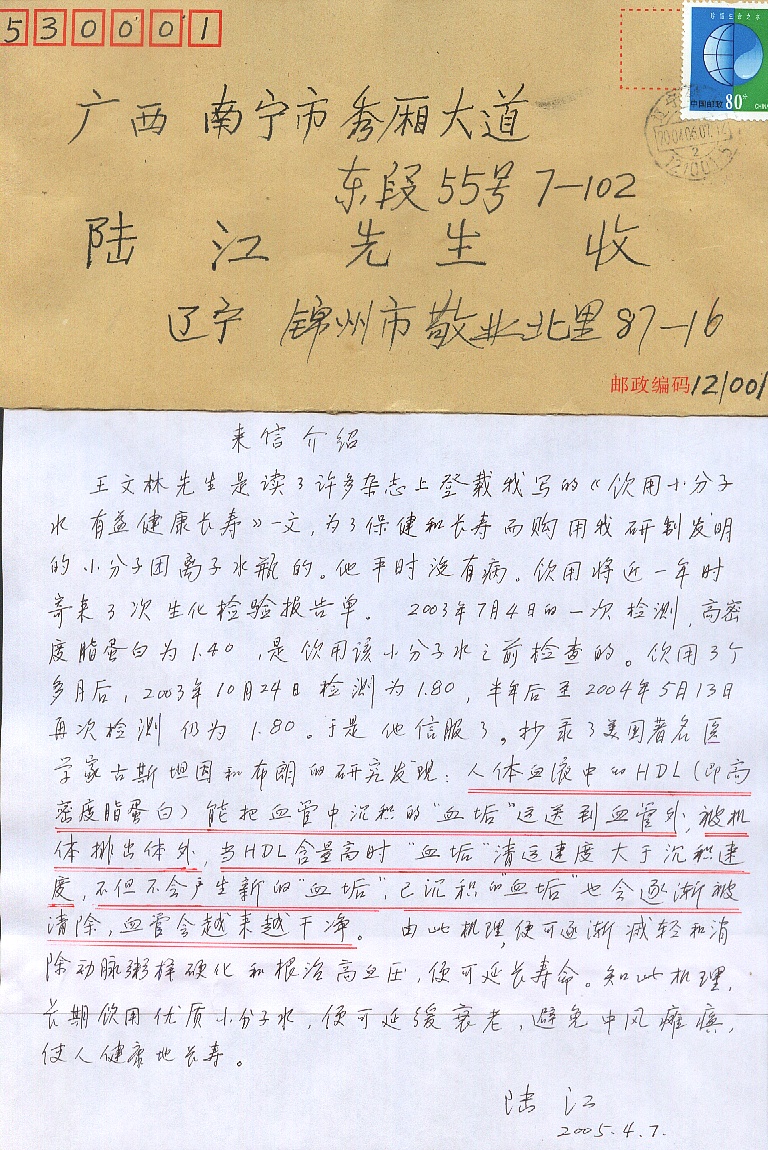 530001
中国邮政 80分
广西 南宁市秀厢大道
东段55号7-102
陆江先生 收
辽宁 锦州市敬业北里87-16
邮政编码121001
来信介绍
王文林先生是读了许多杂志上登载我写的《饮用小分子
水 有益健康长寿》一文,为了保健和长寿而购用我研制发明
的小分子团离子水瓶的。他平时没有病。饮用将近一年时
寄来了3次生化检验报告单。2003年7月4日的一次检测,高密
度脂蛋白为1.40,是饮用该小分子水之前检查的。饮用3个
多月后,2003年10月24日检测为1.80,半年后至2004年5月13日
再次检测仍为1.80。于是他信服了。抄录了美国著名医
学家古斯坦因和布朗的研究发现:人体血液中的HDL(即高
密度脂蛋白)能把血管中沉积的“血垢”运送到血管外,被机
体排出体外,当HDL含量高时“血垢”清运速度大于沉积速
度,不但不会产生新的“血垢”,已沉积的“血垢”也会逐渐被
清除,血管会越来越干净。由此机理,便可逐渐减轻和消
除动脉粥样硬化和根治高血压,便可延长寿命。知此机理,
长期饮用优质小分子水,便可延缓衰老,避免中风瘫痪,
使人健康地长寿。
陆江
2005.4.7.